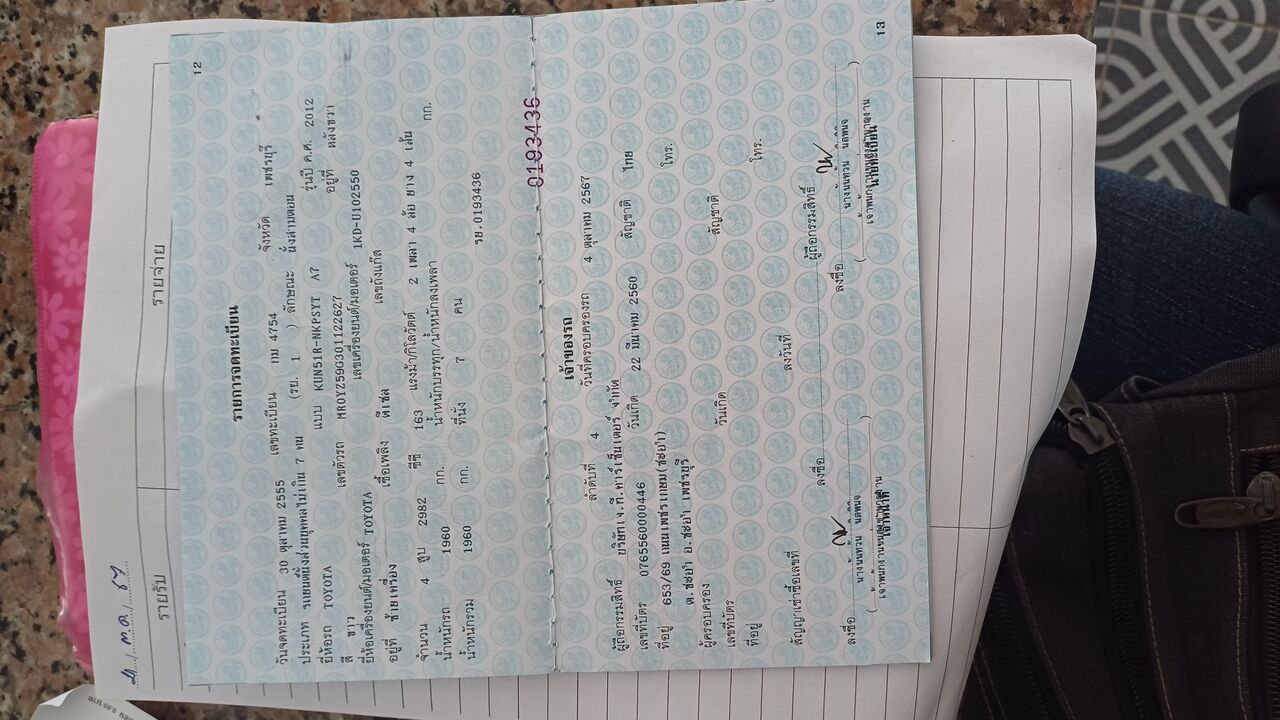 รายรับ
รายจ่าย
12
รายการจดทะเบียน
วันจดทะเบียน 30 ตุลาคม 2555 เลขทะเบียน กม 4754 จังหวัด เพชรบุรี
ประเภท รถยนต์นั่งส่วนบุคคลไม่เกิน 7 คน (รย. 1 ) ลักษณะ นั่งสามตอน
ยี่ห้อรถ TOYOTA แบบ KUN51R-NKPSYT A7 รุ่นปี ค.ศ. 2012
สี ขาว เลขตัวรถ MR0YZ59G301122627 อยู่ที่ หลังขวา
ยี่ห้อเครื่องยนต์/มอเตอร์ TOYOTA เลขเครื่องยนต์/มอเตอร์ 1KD-U102550
อยู่ที่ ซ้ายเครื่อง เชื้อเพลิง ดีเซล เลขถังแก๊ส
จำนวน 4 สูบ 2982 ซีซี 163 แรงม้า/กิโลวัตต์ 2 เพลา 4 ล้อ ยาง 4 เส้น
น้ำหนักรถ 1960 กก. น้ำหนักบรรทุก/น้ำหนักลงเพลา กก.
น้ำหนักรวม 1960 กก. ที่นั่ง 7 คน
รย.0193436
0193436
เจ้าของรถ
ลำดับที่ 4 วันที่ครอบครองรถ 4 ตุลาคม 2567
ผู้ถือกรรมสิทธิ์ บริษัทเจ.ที.คาร์เซ็นเตอร์ จำกัด
เลขที่บัตร 0765560000446 วันเกิด 22 มีนาคม 2560 สัญชาติ ไทย
ที่อยู่ 653/69 ถนนเพชรเกษม(ชะอำ) โทร.
ต.ชะอำ อ.ชะอำ เพชรบุรี
ผู้ครอบครอง
เลขที่บัตร วันเกิด สัญชาติ
ที่อยู่ โทร.
สัญญาเช่าซื้อเลขที่ ลงวันที่
ลงชื่อ ผู้ถือกรรมสิทธิ์
ลงชื่อ
ลงชื่อ
เจ้าหน้าที่
นายทะเบียน
13